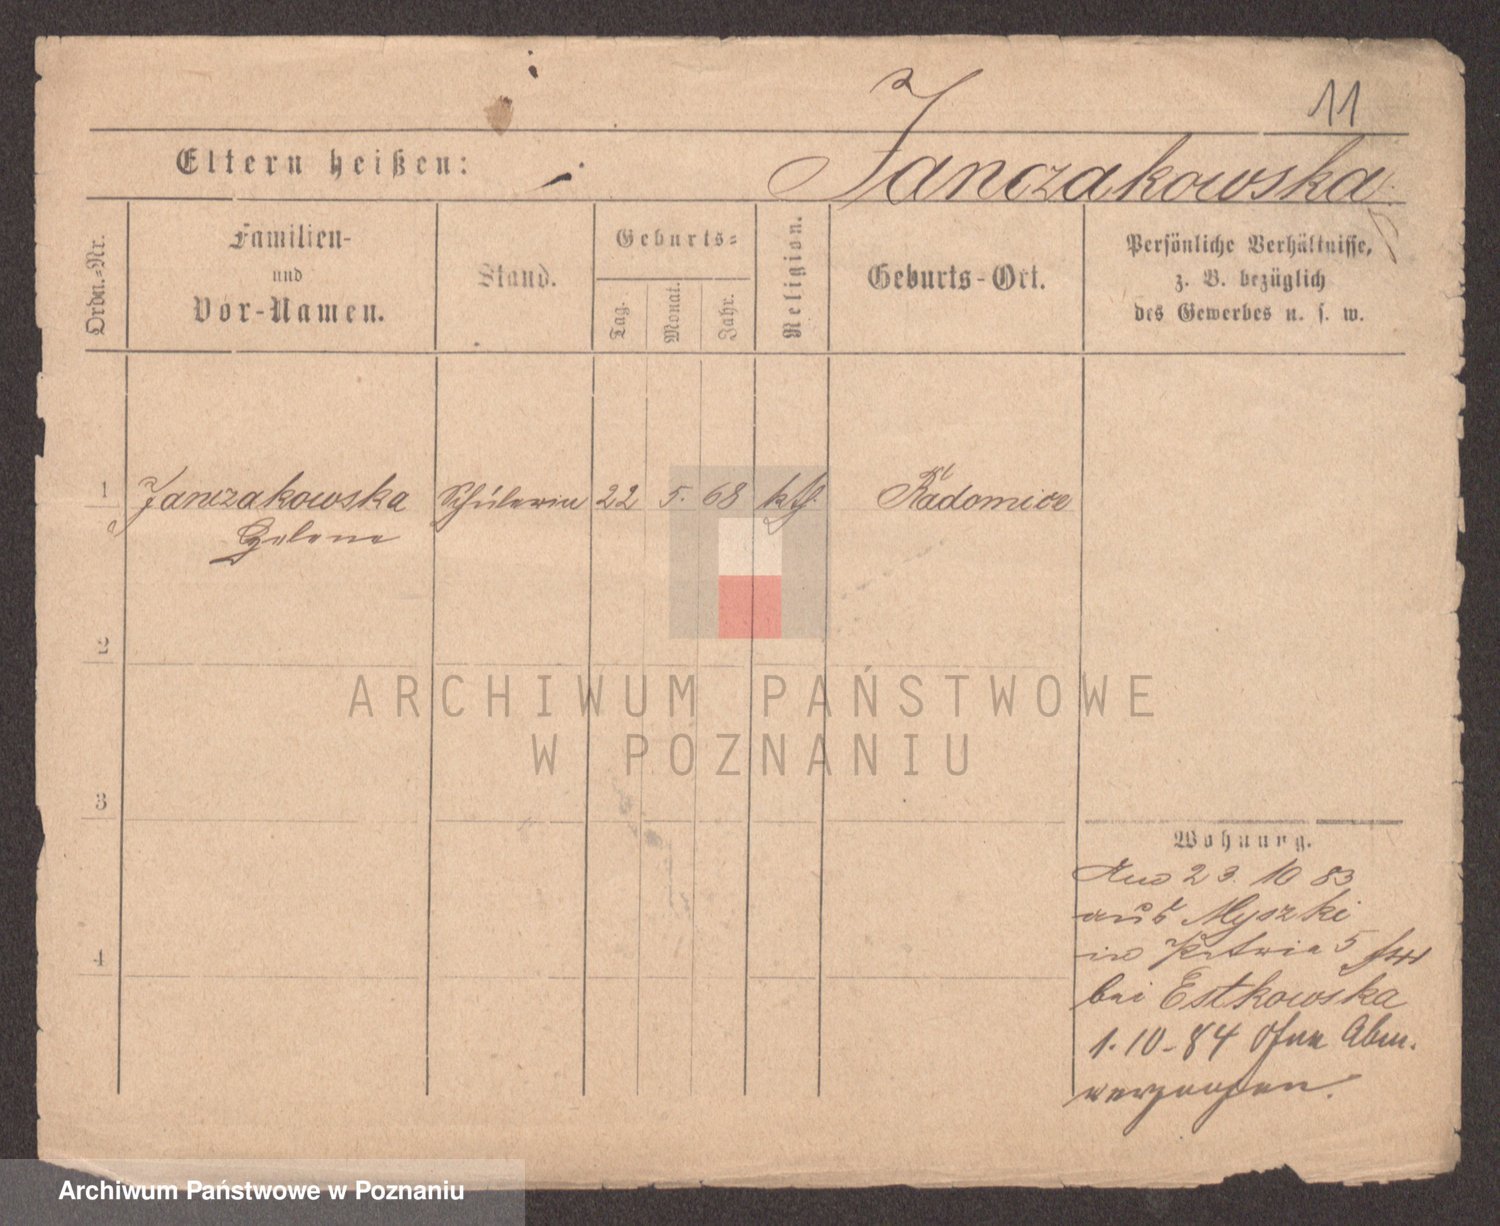 11
Eltern heißen:
Janczakowska
Ordn.-Nr.
Familien-
und
Vor-Namen.
Stand.
Geburts-
Tag.
Monat.
Jahr.
Religion.
Geburts-Ort.
Persönliche Verhältnisse,
z. B. bezüglich
des Gewerbes u. s. w.
1 Janczakowska Schülerin 22 5. 68 kth. Kl Radomice
Helene
2
3
4
Wohnung.
23. 10 83
aus Myszki
in 5
bei Estkowska
1.10.84 Ohne Abm.
verzogen.
ARCHIWUM PAŃSTWOWE
W POZNANIU
Archiwum Państwowe w Poznaniu